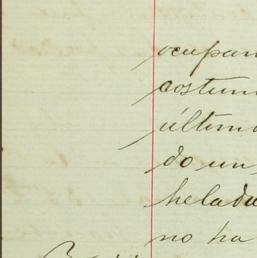 ocupan
costum
última
do un
helado
no ha